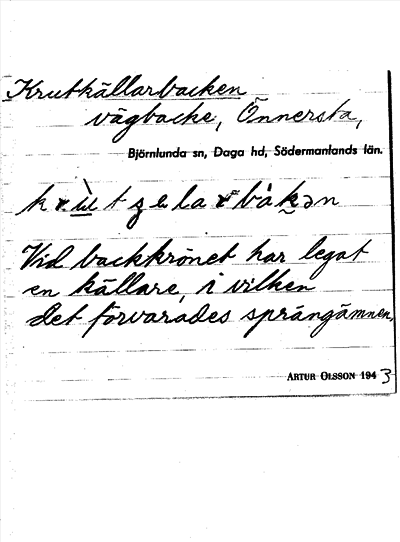 Krutkällarbacken
vägbacke, Önnersta,
Björnlunda sn, Daga hd, Södermanlands län.
Vid backkrönet har legat
en källare, i vilken
det förvarades sprängämnen.
ARTUR OLSSON 1943